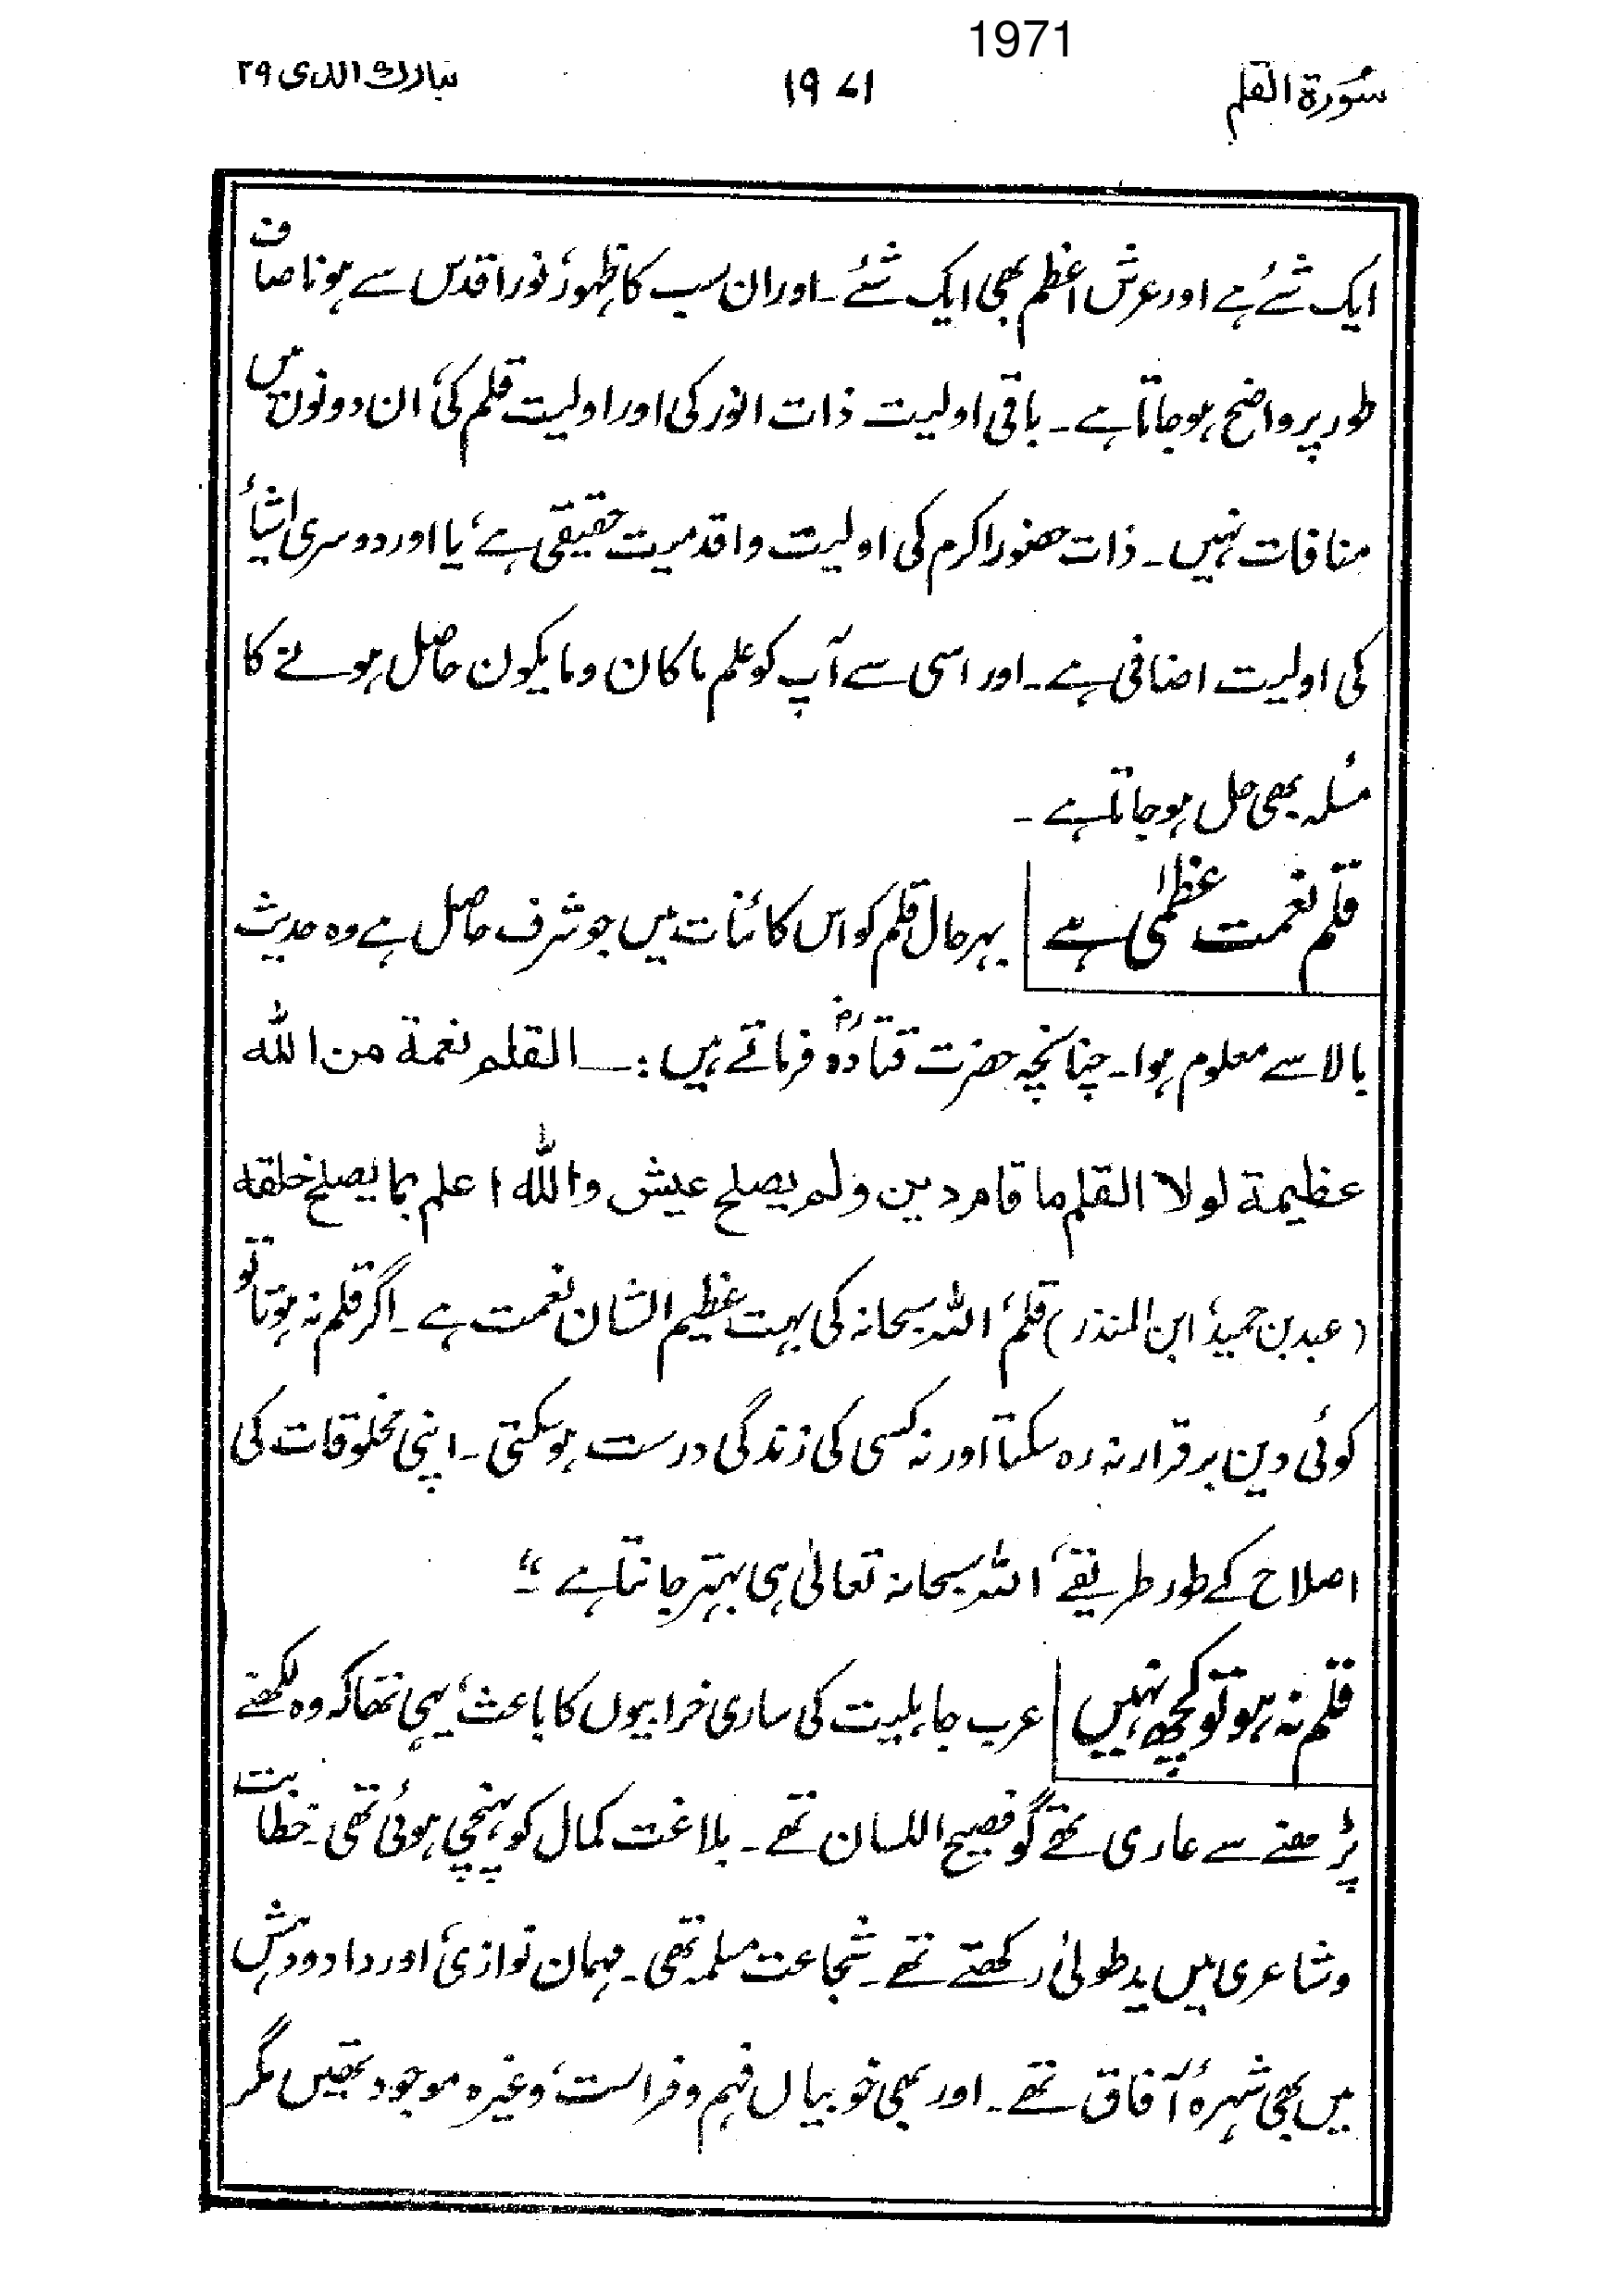 1971
سُورة القلم ۱۹۷۱ تبارك الذی ۲۹
ایک شۓ ہے اور عرش اعظم بھی ایک شۓ ۔ اور ان سب کا ظہور، نور اقدس سے ہونا صاف
طور پر واضح ہوجاتا ہے ۔ باقی اولیت ذات انور کی اور اولیت قلم کی، ان دونوں میں
منافات نہیں ۔ ذات حضور اکرم کی اولیت واقدمیت حقیقی ہے، یا اور دوسری اشیاء
کی اولیت اضافی ہے ۔ اور اسی سے آپ کو علم ماکان ومایکون حاصل ہونے کا
مسئلہ بھی حل ہوجاتا ہے ۔
قلم نعمت عظمیٰ ہے بہرحال قلم کو اس کائنات میں جو شرف حاصل ہے وہ حدیث
بالا سے معلوم ہوا ۔ چنانچہ حضرت قتادہؓ فرماتے ہیں :۔ القلم نعمة من الله
عظيمة لولا القلم ما قام دين ولم يصلح عيش والله اعلم بما يصلح خلقه
(عبد بن حمید، ابن المنذر) قلم، اللہ سبحانہ کی بہت عظیم الشان نعمت ہے ۔ اگر قلم نہ ہوتا تو
کوئی دین برقرار نہ رہ سکتا اور نہ کسی کی زندگی درست ہوسکتی ۔ اپنی مخلوقات کی
اصلاح کے طور طریقے، اللہ سبحانہ تعالیٰ ہی بہتر جانتا ہے ۔"
قلم نہ ہو تو کچھ نہیں عرب جاہلیت کی ساری خرابیوں کا باعث، یہی تھا کہ وہ لکھنے
پڑھنے سے عاری تھے گو فصیح اللسان تھے ۔ بلاغت کمال کو پہنچی ہوئی تھی ۔ خطابت
وشاعری میں ید طولیٰ رکھتے تھے ۔ شجاعت مسلمہ تھی ۔ مہمان نوازی، اور دادودہش
میں بھی شہرۂ آفاق تھے ۔ اور بھی خوبیاں فہم وفراست، وغیرہ موجود تھیں مگر